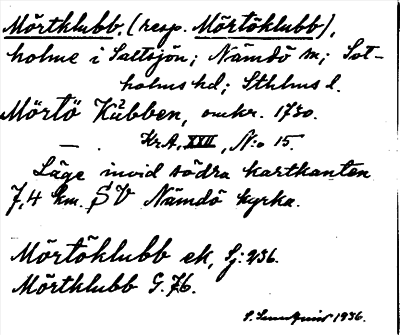 Mörtklubb, (resp. Mörtöklubb),
holme i Saltsjön; Nämdö sn; Sot-
holms hd; Sthlms l.
Mörtö Kübben, omkr. 1730.
Kr.A, XXII, N:o 15.
Läge invid södra kartkanten
7,4 km. SV Nämdö kyrka.
Mörtöklubb ek, Sj: 236.
Mörtklubb G. 76.
1936.